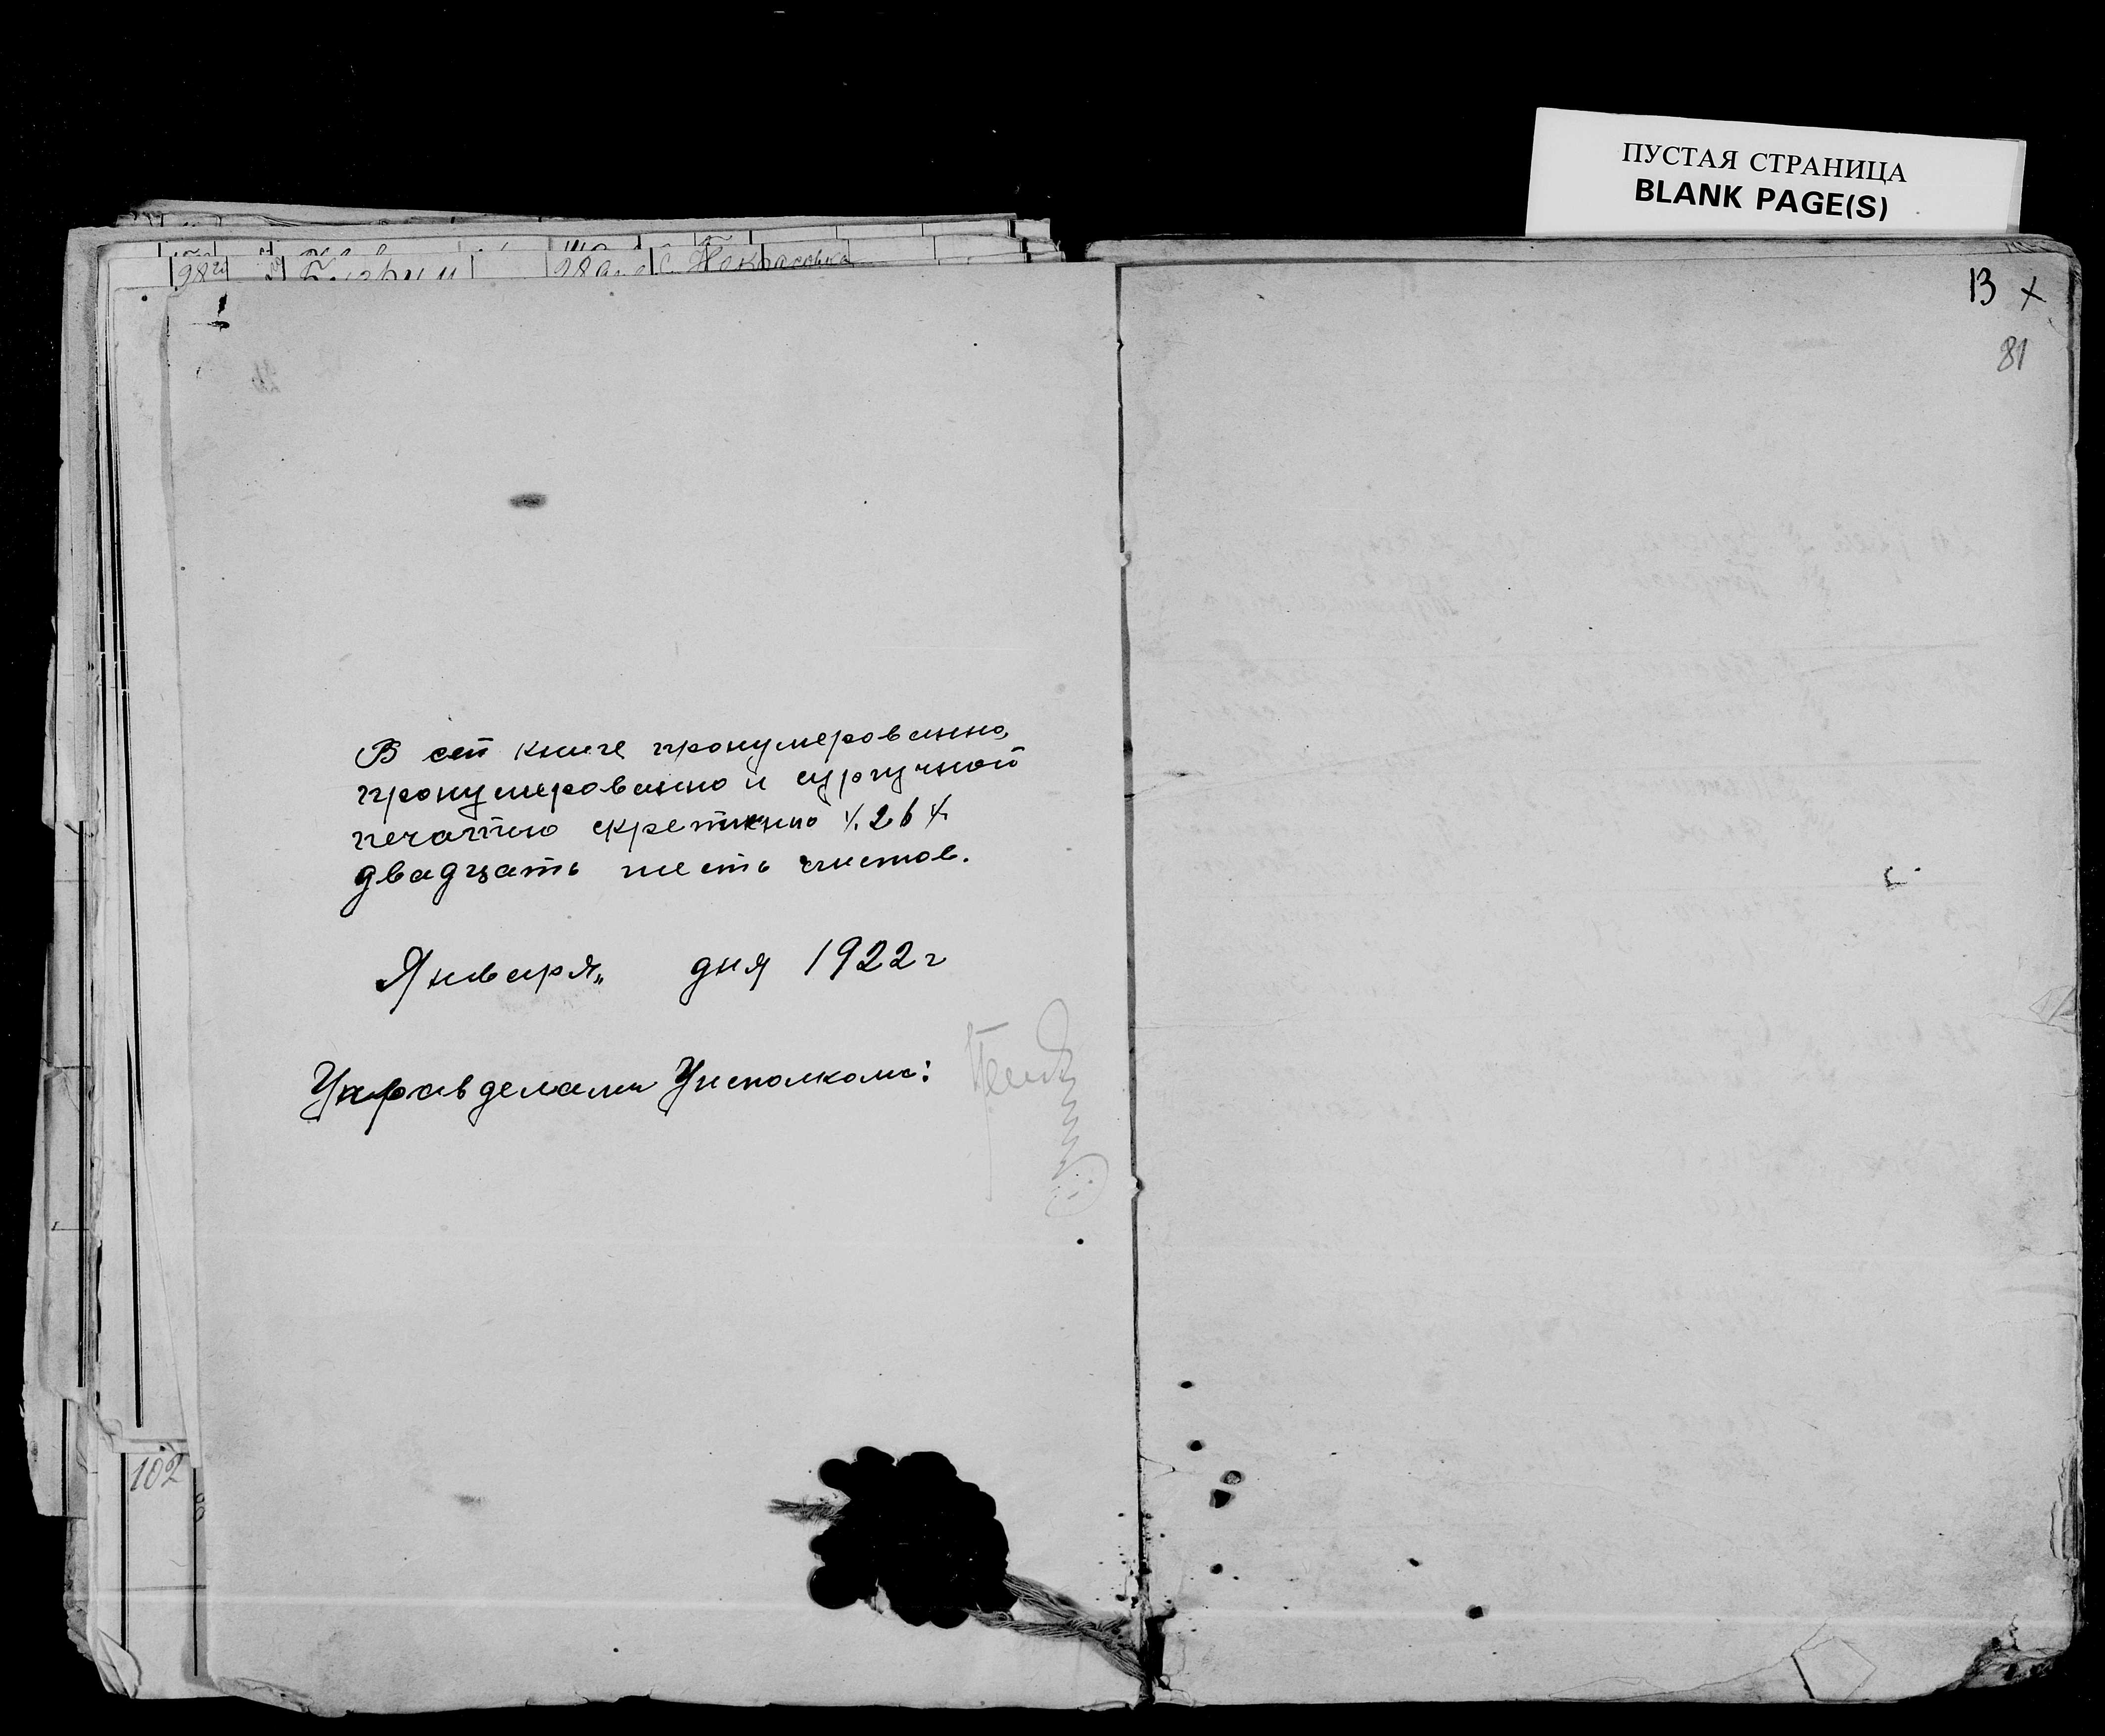 ПУСТАЯ СТРАНИЦА
BLANK PAGE(S)
28 Некрасовка
13 х
81
В сей книге пронумерованно,
пронумерованно и сургучной
печатью скрепленно 26
двадцать шесть листов.
Января„ дня 1922 г
Управделами Уисполкома:
102